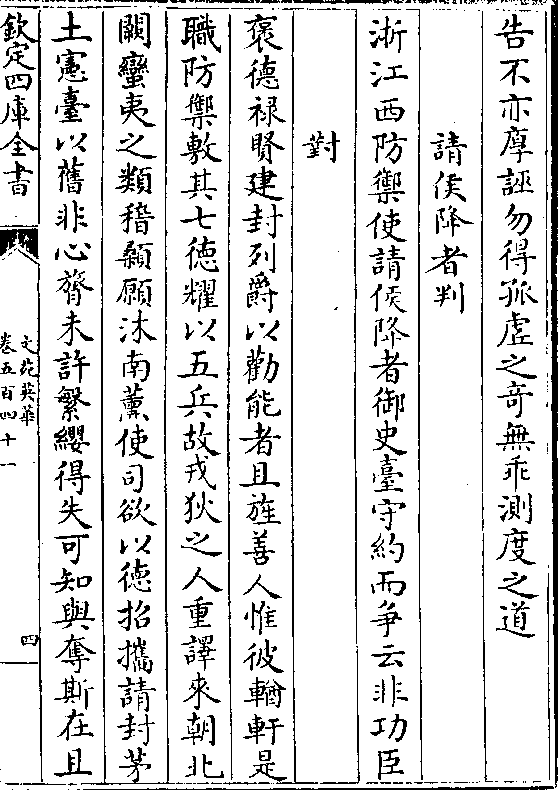 告不亦厚誣勿得孤虛之竒無乖測度之道
請侯降者判
浙江西防禦使請侯降者御史臺守約而争云非功臣
對
褒德禄賢建封列爵以勸能者且旌善人惟彼輶軒是
職防禦敷其七德耀以五兵故戎狄之人重譯來朝北
闕蠻夷之類稽顙願沐南薰使司欲以德招攜請封茅
土憲臺以舊非心膂未許繁纓得失可知與奪斯在且
欽定四庫全書
文苑英華
卷五百四十一
四